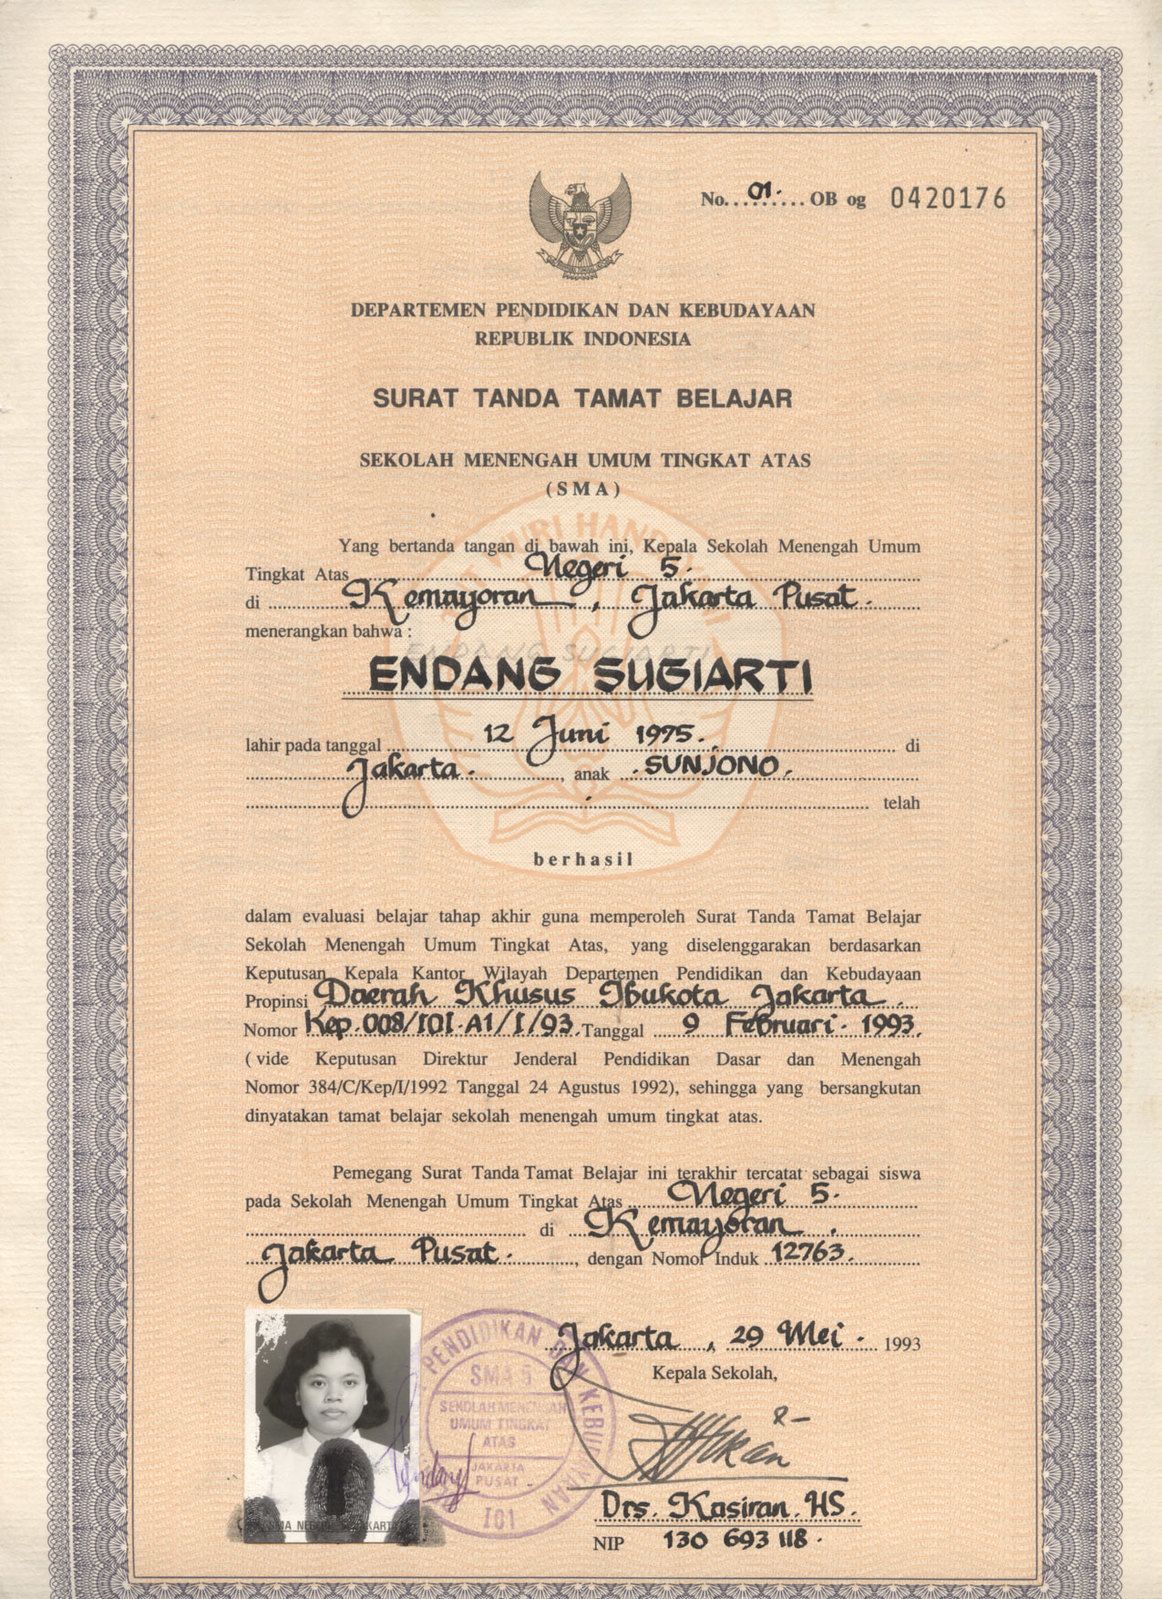 No. 01. OB og 0420176
DEPARTEMEN PENDIDIKAN DAN KEBUDAYAAN
REPUBLIK INDONESIA
SURAT TANDA TAMAT BELAJAR
SEKOLAH MENENGAH UMUM TINGKAT ATAS
(SMA)
Yang bertanda tangan di bawah ini, Kepala Sekolah Menengah Umum
Tingkat Atas Negeri 5.
di Kemayoran, Jakarta Pusat.
menerangkan bahwa :
ENDANG SUGIARTI
ENDANG SUGIARTI
lahir pada tanggal 12 Juni 1975. di
Jakarta., anak SUNJONO.
telah
berhasil
dalam evaluasi belajar tahap akhir guna memperoleh Surat Tanda Tamat Belajar
Sekolah Menengah Umum Tingkat Atas, yang diselenggarakan berdasarkan
Keputusan Kepala Kantor Wilayah Departemen Pendidikan dan Kebudayaan
Propinsi Daerah Khusus Ibukota Jakarta.
Nomor Kep.008/I01.A1/I/93. Tanggal 9 Februari. 1993.
( vide Keputusan Direktur Jenderal Pendidikan Dasar dan Menengah
Nomor 384/C/Kep/I/1992 Tanggal 24 Agustus 1992), sehingga yang bersangkutan
dinyatakan tamat belajar sekolah menengah umum tingkat atas.
Pemegang Surat Tanda Tamat Belajar ini terakhir tercatat sebagai siswa
pada Sekolah Menengah Umum Tingkat Atas Negeri 5.
di Kemayoran.
Jakarta Pusat., dengan Nomor Induk 12763.
Jakarta, 29 Mei. 1993
Kepala Sekolah,
PENDIDIKAN DAN KEBUDAYAAN
SMA 5
SEKOLAH MENENGAH
UMUM TINGKAT
ATAS
JAKARTA
PUSAT
I01
Drs. Kasiran. HS.
NIP 130 693 118.